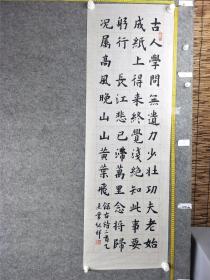 古人學問無遺力少壯功夫老始
成紙上得来終覺淺絶知此事要
躬行 長江悲已滯萬里念将歸
况属高風晚山山黄葉飛
録古诗二首